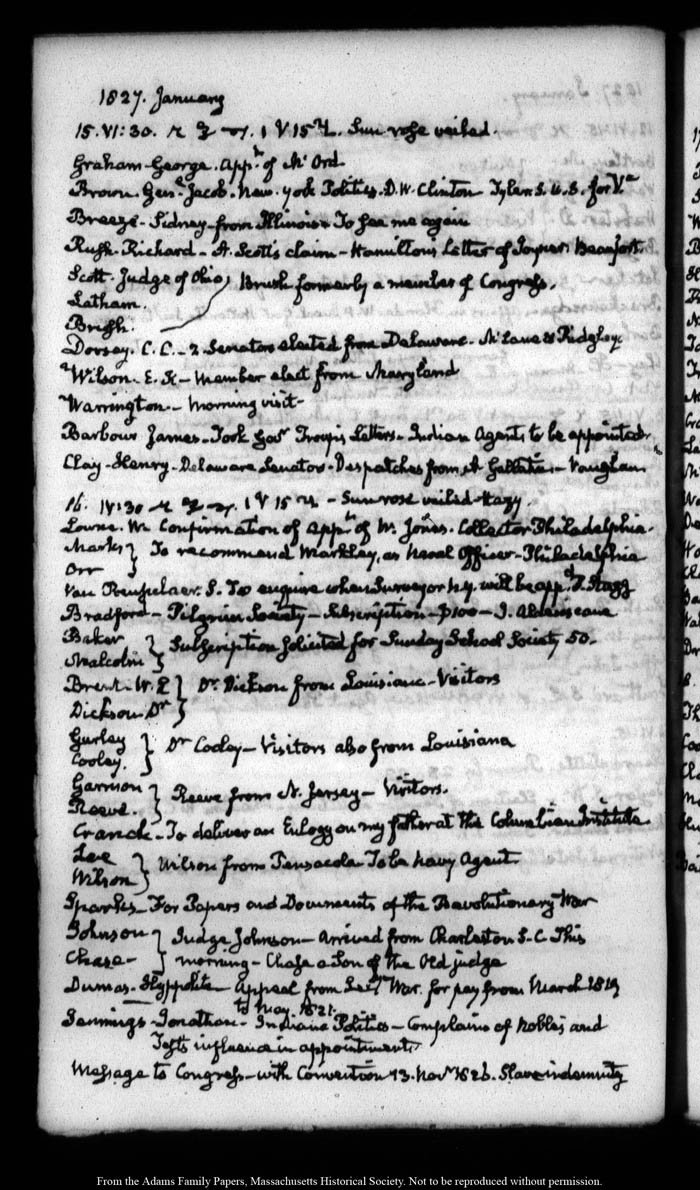 1827. January
15. VI:30. 1 V 15. Sun rose veiled.
Graham-George. Appt. of Mr Ord
Brown. Genl. Jacob. New-York Politics. D.W. Clinton Tyler S.U.S. for Va
Breeze-Sidney-from Illinois To see me again
Rush. Richard-A. Scott's claim-Hamilton's Letter of Joyner. Beaufort.
Scott. Judge of Ohio
Latham.
Brush.
Brush formerly a member of Congress.
Dorsey. C.C.-2 Senators elected from Delaware. McLane & Ridgely
Wilson. E.K-Member elect from Maryland
Warrington-Morning visit-
Barbour James-Took Govr Troup's Letters-Indian Agents to be appointed
Clay-Henry-Delaware Senators-Despatches from A Gallatin-Vaughan
16. IV:30 1 V 15-Sun rose veiled-Hazy.
Lowrie. W. Confirmation of Appt. of W. Jones. Collector Philadelphia.
Marks
Orr
To recommend Markley, as Naval Officer-Philadelphia
Van Rensselaer. S. To enquire when Surveyor N.Y. will be appd. Stagg
Bradford-Pilgrim Society-Subscription-$100-
Baker
Malcolm
Subscription solicited for Sunday School Society 50-
Brent. W.L
Dickson Dr
Dr. Dickson from Louisiana-Visitors
Gurley
Cooley.
Dr Cooley-Visitors also from Louisiana
Garnison
Reeve.
Reeve from N. Jersey-Visitors.
Cranch-To deliver an Eulogy on my father at the Columbian Institute
Lee
Wilson
Wilson from Pensacola To be Navy Agent
Sparks-For Papers and Documents of the Revolutionary War
Johnson
Chase-
Judge Johnson-Arrived from Charleston S-C This
morning-Chase a Son of the Old judge
Dumas-Hyppolite-Appeal from Secy War. for pay from March 1819
to Nov. 1821.
Jennings-Jonathan-Indiana Politics-Complains of Nobles and
Tests influence in appointments.
Message to Congress-with Convention 13. Novr 1826. Slave indemnity
From the Adams Family Papers, Massachusetts Historical Society. Not to be reproduced without permission.